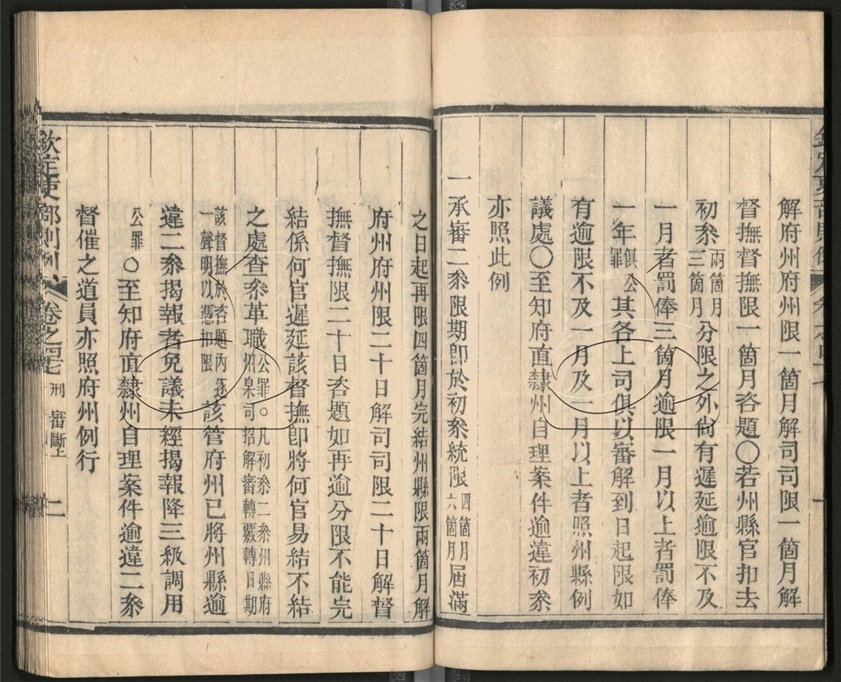 解府州府州限一箇月解司司限一箇月解
督撫督撫限一箇月咨題〇若州縣官扣去
初叅兩箇月三箇月分限之外尙有遲延逾限不及
一月者罰俸三箇月逾限一月以上者罰俸
一年俱公罪其各上司俱以審解到日起限如
有逾限不及一月及一月以上者照州縣例
議處〇至知府直隸州自理案件逾違初叅
亦照此例
一承審二叅限期卽於初叅統限四箇月六箇月屆滿
之日起再限四箇月完結州縣限兩箇月解
府州府州限二十日解司司限二十日解督
撫督撫限二十日咨題如再逾分限不能完
結係何官遲延該督撫卽將何官易結不結
之處查叅革職公罪〇凡初叅二叅州縣府州臬司招解審轉覈轉日期
該督撫於咨題內逐一聲明以憑扣限該管府州已將州縣逾
違二叅揭報者免議未經揭報降三級調用
公罪〇至知府直隸州自理案件逾違二叅
督催之道員亦照府州例行
欽定吏部則例 卷之四十七 刑 審斷上 二